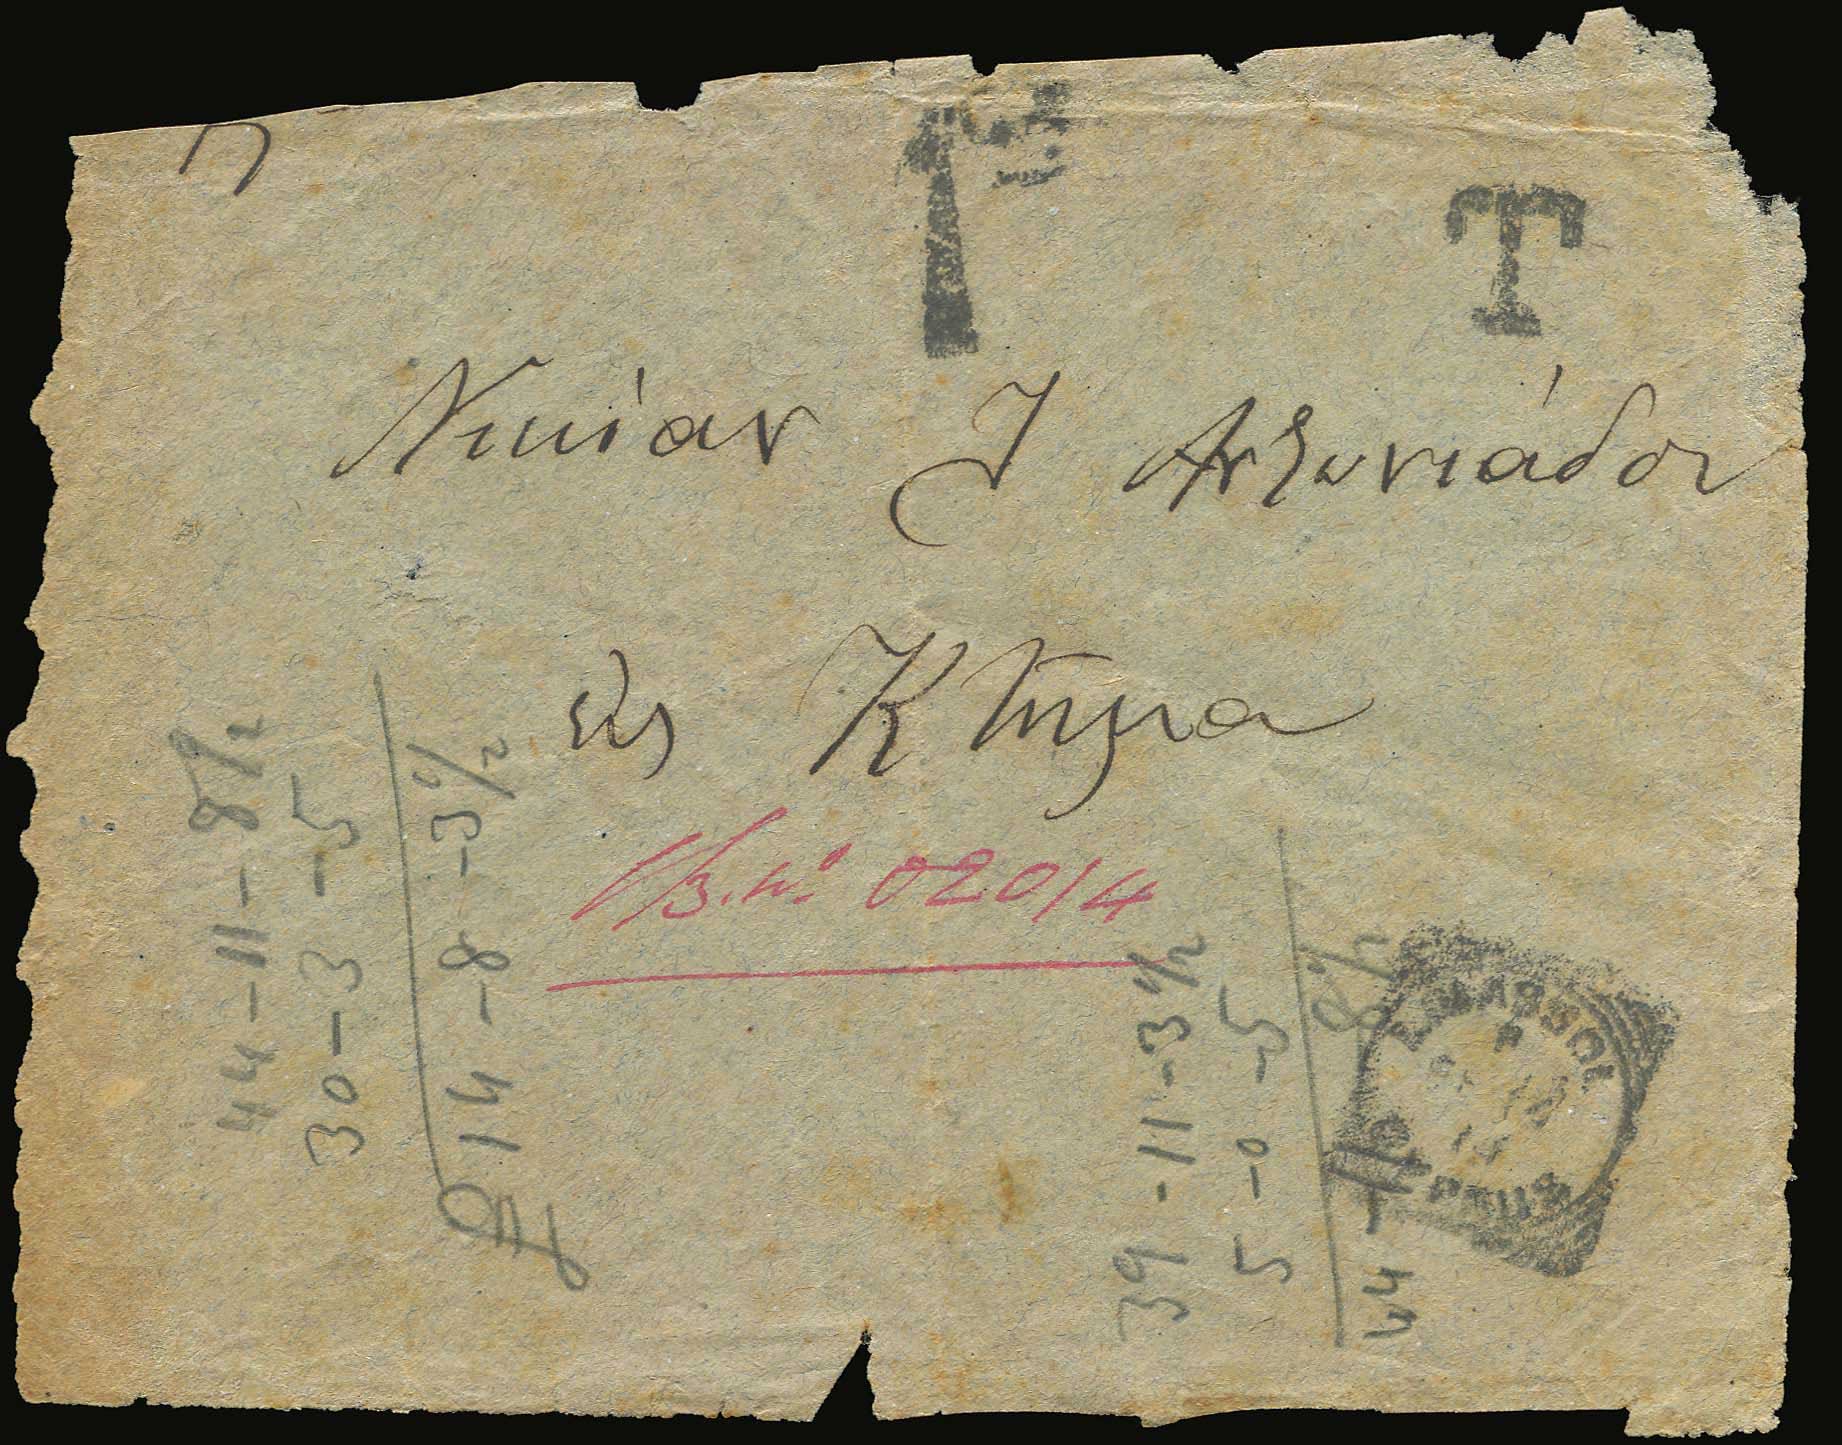 T T
Νικίαν Ι Αντωνιάδου
εἰς Κτῆμα
02014
44-11-8½
30-3-5
£ 14-8-3½
39-11-3½
5-0-5
44-11-8½
LIMASSOL
CYPRUS